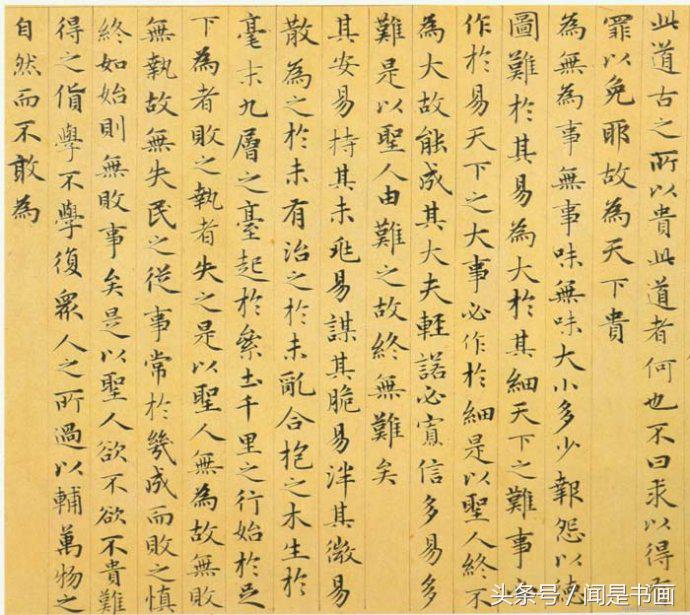 此道古之所以貴此道者何也不曰求以得有
罪以免耶故為天下貴
為無為事無事味無味大小多少報怨以德
圖難於其易為大於其細天下之難事
作於易天下之大事必作於細是以聖人終不
為大故能成其大夫輕諾必寡信多易多
難是以聖人由難之故終無難矣
其安易持其未兆易謀其脆易泮其微易
散為之於未有治之於未亂合抱之木生於
毫末九層之臺起於絫土千里之行始於足
下為者敗之執者失之是以聖人無為故無敗
無執故無失民之從事常於幾成而敗之慎
終如始則無敗事矣是以聖人欲不欲不貴難
得之貨學不學復眾人之所過以輔萬物之
自然而不敢為
头条号/闻是书画